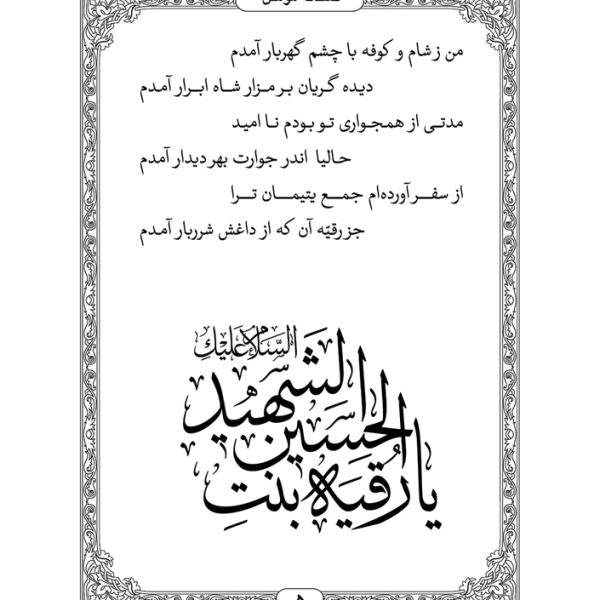 من ز شام و کوفه با چشم گهربار آمدم
دیده گریان بر مزار شاه ابرار آمدم
مدتی از همجواری تو بودم نا امید
حالیا اندر جوارت بهر دیدار آمدم
از سفر آورده‌ام جمع یتیمان ترا
جز رقیّه آن که از داغش شرربار آمدم
السّلام علیكِ
یا رُقیه بنتِ
الحسین
الشّهید